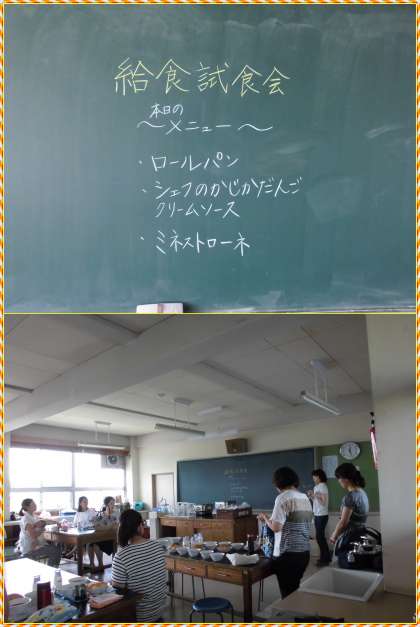 給食試食会
本日の
～メニュー～
・ロールパン
・シェフのかじかだんご
クリームソース
・ミネストローネ